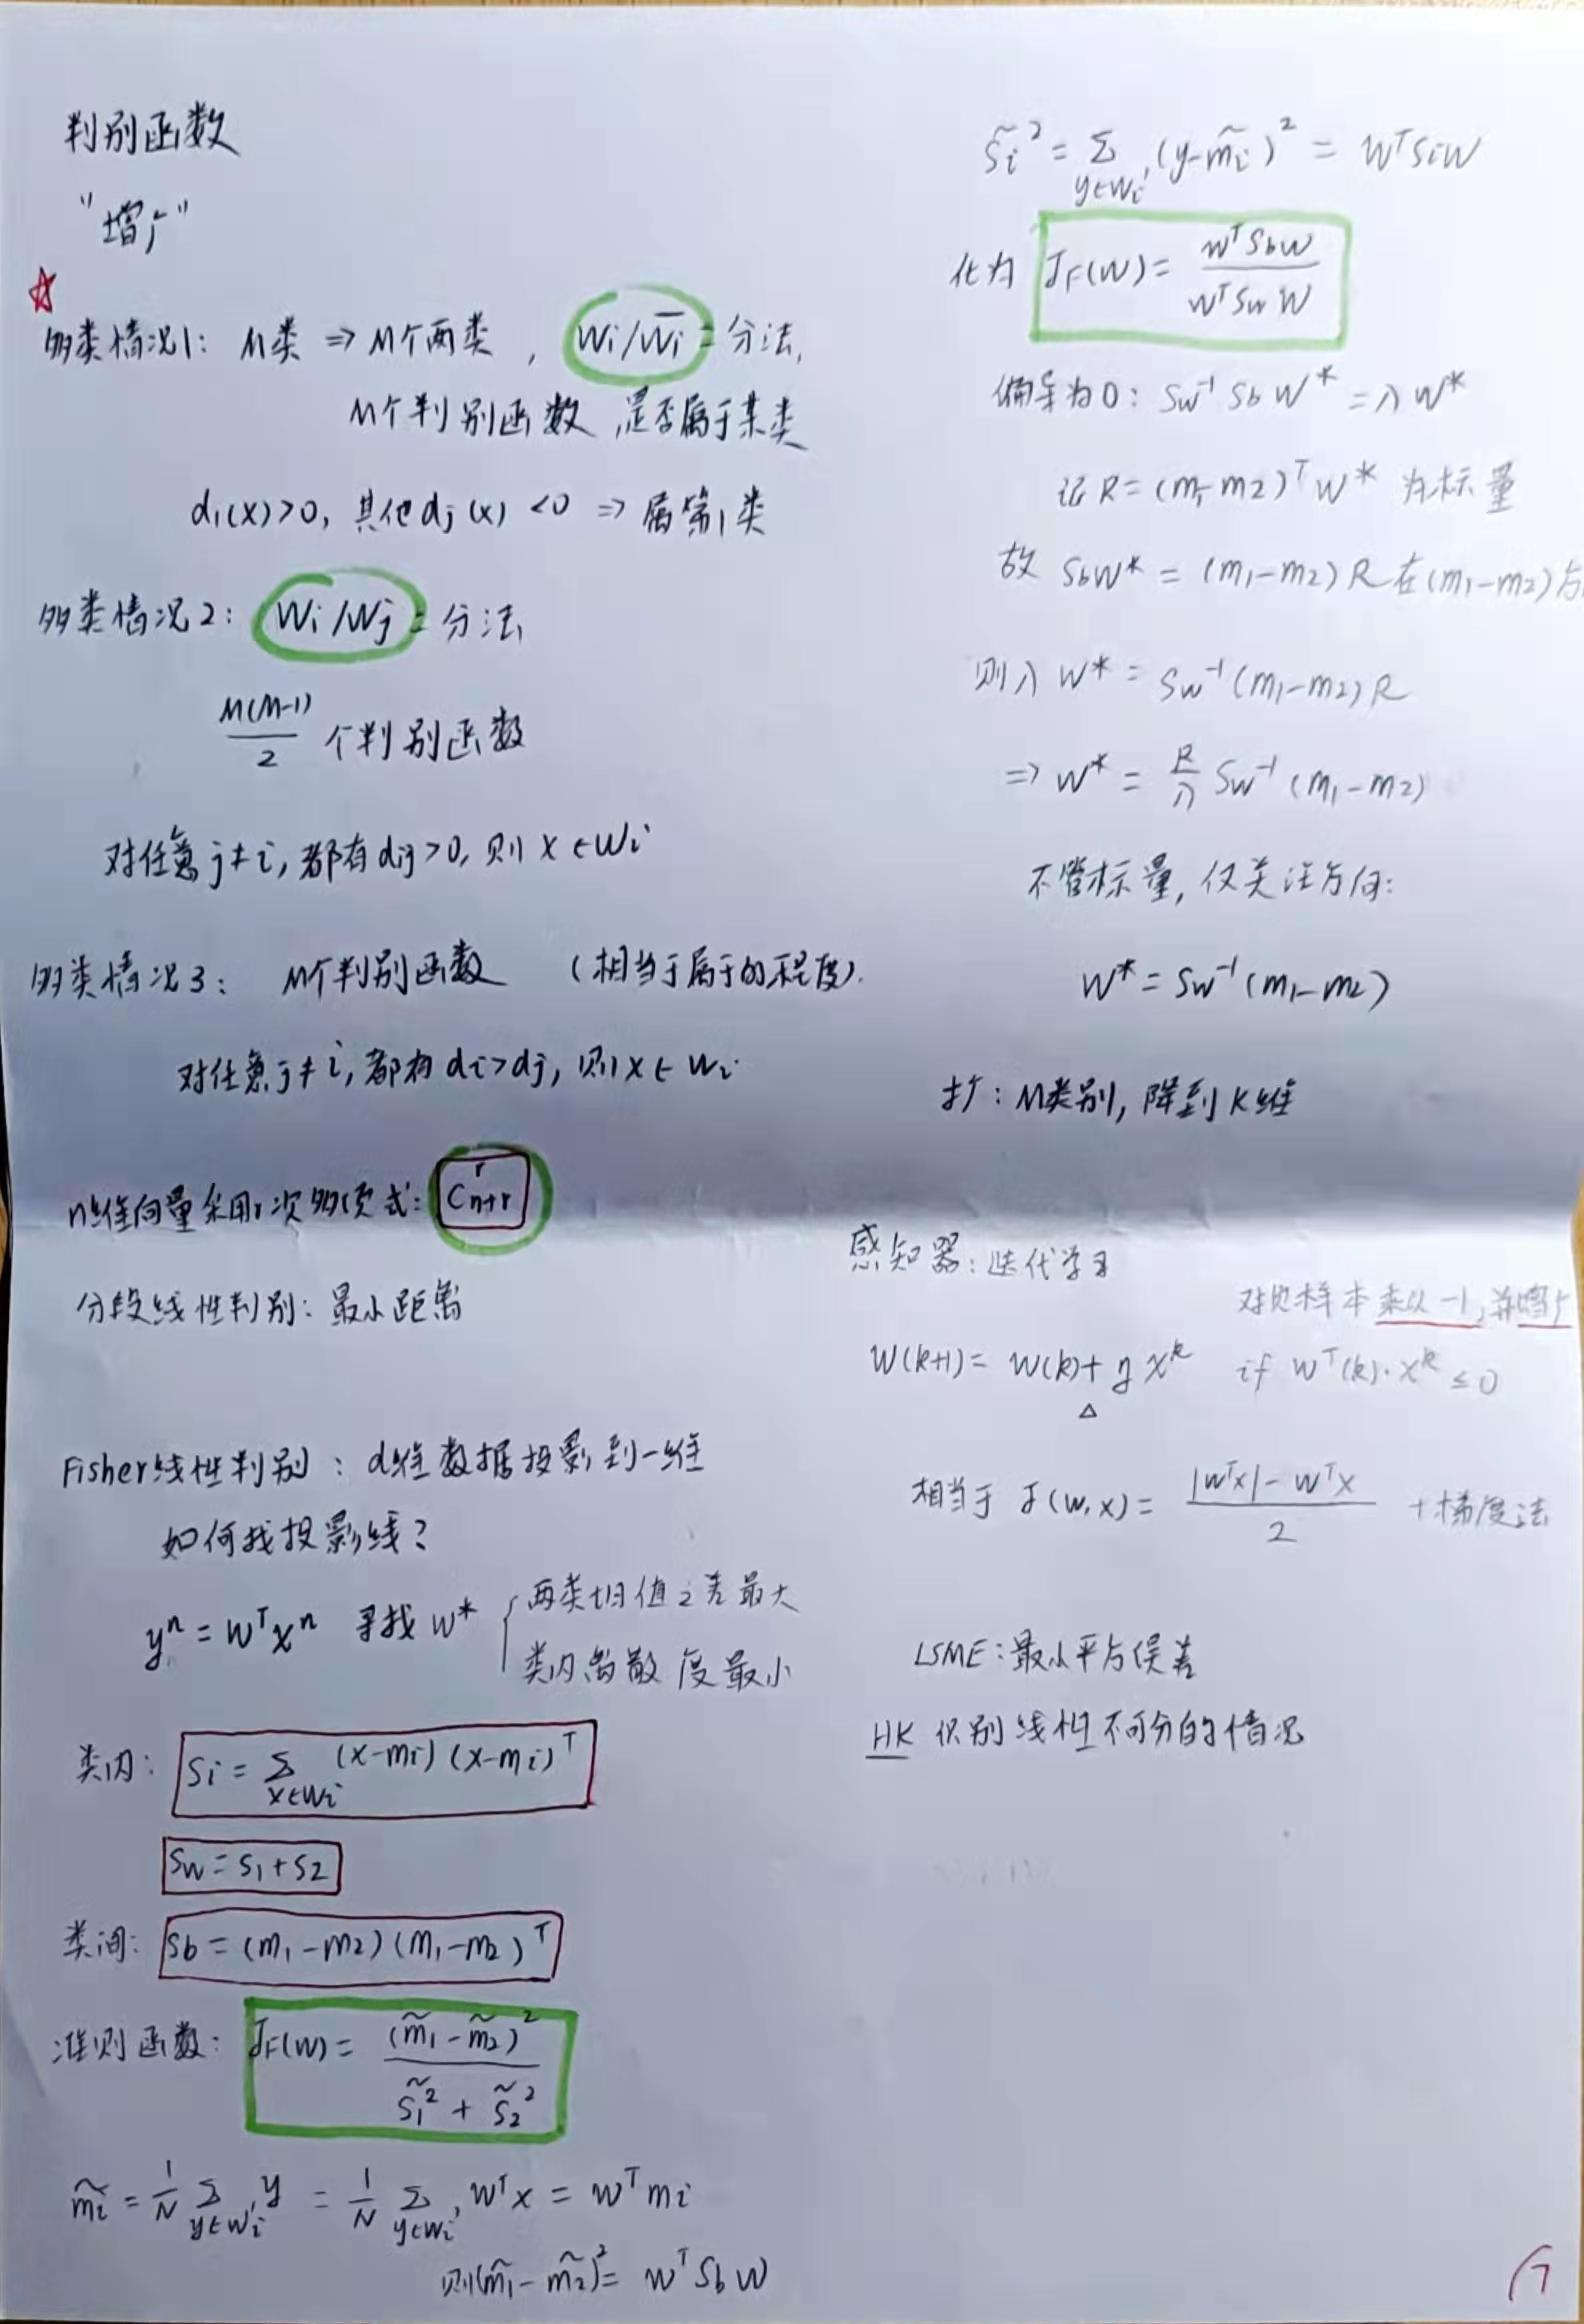 判别函数
"增广"
☆
多类情况1: M类 ⇒ M个两类, Wi/W̅i二分法,
M个判别函数,是否属于某类
d₁(x)>0, 其他dj(x)<0 ⇒ 属第1类
多类情况2: Wi/Wj二分法
M(M-1)/2 个判别函数
对任意j≠i, 都有dij>0, 则 x∈Wi
多类情况3: M个判别函数 (相当于属于的程度).
对任意j≠i, 都有di>dj, 则x∈Wi
n维向量采用r次多项式: C_{n+r}^r
分段线性判别: 最小距离
Fisher线性判别: d维数据投影到一维
如何找投影线?
yⁿ = wᵀxⁿ 寻找 w* { 两类均值之差最大
类内离散度最小
类内: Si = Σ_{x∈Wi} (x-mi)(x-mi)ᵀ
Sw = S1+S2
类间: Sb = (m1-m2)(m1-m2)ᵀ
准则函数: J_F(w) = (m̃1-m̃2)² / (S̃1² + S̃2²)
m̃i = 1/N Σ_{y∈Wi'} y = 1/N Σ_{y∈Wi'} wᵀx = wᵀmi
则(m̃1-m̃2)² = wᵀSbw
S̃i² = Σ_{y∈Wi'} (y-m̃i)² = wᵀSiw
化为 J_F(w) = wᵀSbw / wᵀSww
偏导为0: Sw⁻¹Sbw* = λw*
记R = (m1-m2)ᵀw* 为标量
故 Sbw* = (m1-m2)R 在(m1-m2)方
则λw* = Sw⁻¹(m1-m2)R
⇒ w* = R/λ Sw⁻¹(m1-m2)
不管标量, 仅关注方向:
w* = Sw⁻¹(m1-m2)
扩: M类别, 降到K维
感知器: 迭代学习
对负样本乘以-1, 并增广
w(k+1) = w(k)+ηxᵏ if wᵀ(k)·xᵏ ≤ 0
△
相当于 J(w,x) = (|wᵀx| - wᵀx) / 2 + 梯度法
LSME: 最小平方误差
HK 识别线性不可分的情况